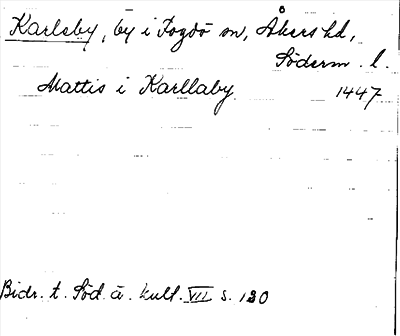 Karleby, by i Fogdö sn, Åkers hd,
Söderm. l.
Mattis i Karllaby 1447
Bidr. t. Söd. ä. kult. VII s. 130